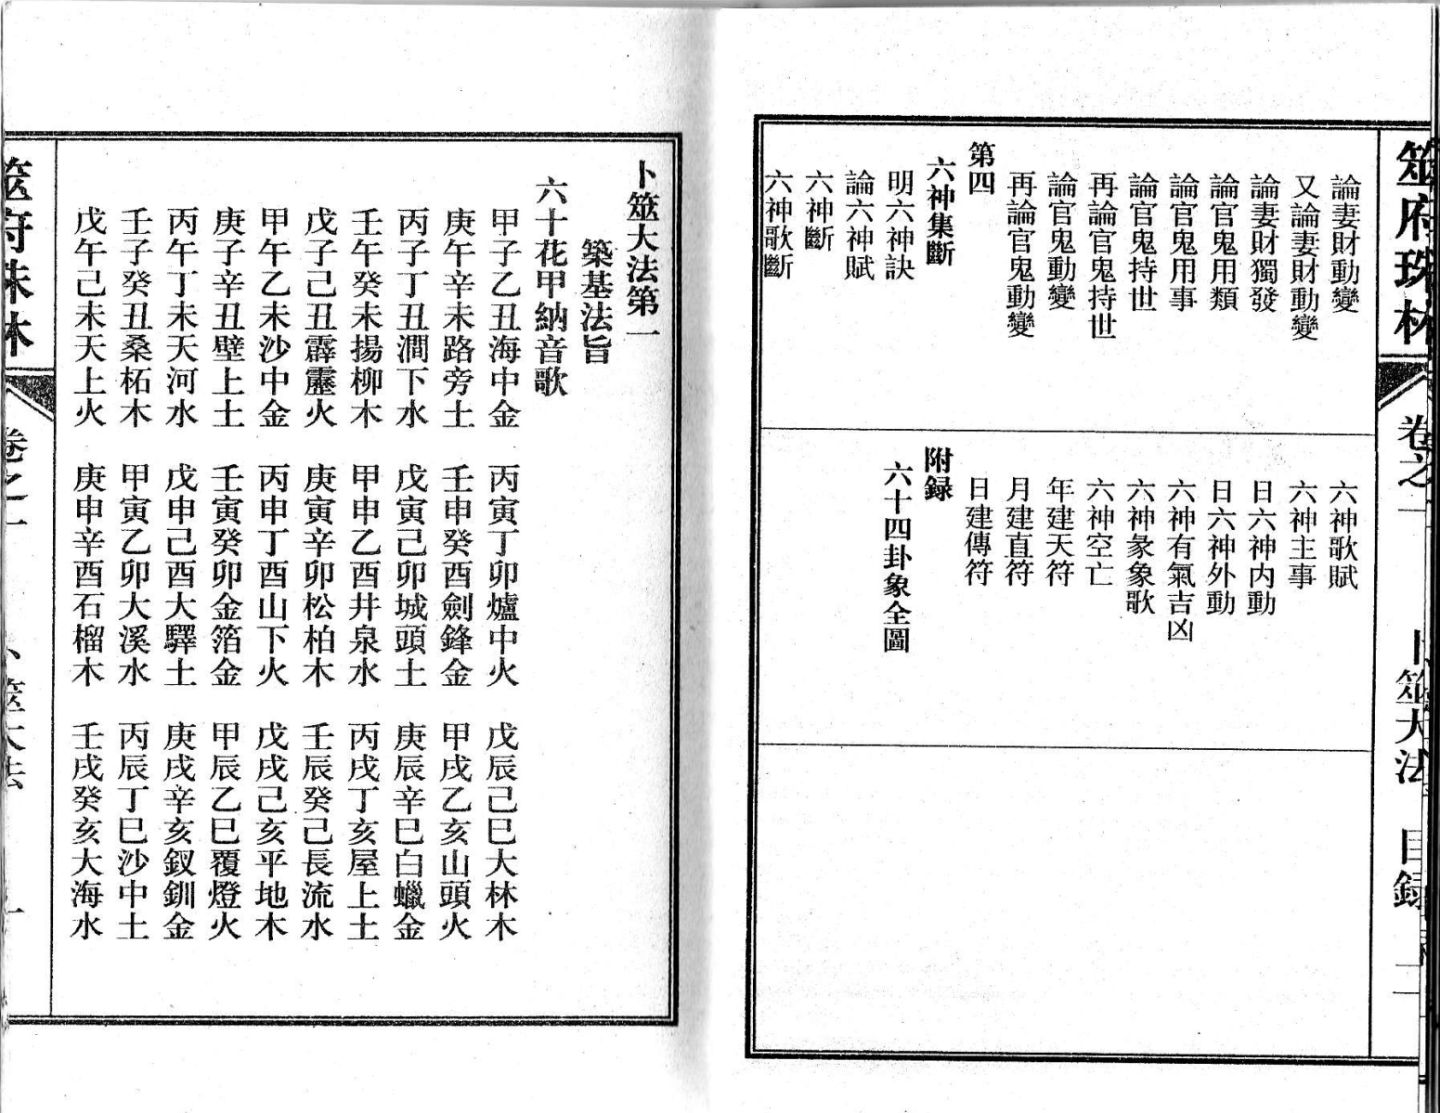 筮府珠林
卷之一
卜筮大法
目録
二
論妻財動變
又論妻財動變
論妻財獨發
論官鬼用類
論官鬼用事
論官鬼持世
再論官鬼持世
論官鬼動變
再論官鬼動變
第四
六神集斷
明六神訣
論六神賦
六神斷
六神歌斷
六神歌賦
六神主事
日六神内動
日六神外動
六神有氣吉凶
六神彖象歌
六神空亡
年建天符
月建直符
日建傳符
附録
六十四卦象全圖
卜筮大法第一
築基法旨
六十花甲納音歌
甲子乙丑海中金 丙寅丁卯爐中火 戊辰己巳大林木
庚午辛未路旁土 壬申癸酉劍鋒金 甲戌乙亥山頭火
丙子丁丑澗下水 戊寅己卯城頭土 庚辰辛巳白蠟金
壬午癸未揚柳木 甲申乙酉井泉水 丙戌丁亥屋上土
戊子己丑霹靂火 庚寅辛卯松柏木 壬辰癸己長流水
甲午乙未沙中金 丙申丁酉山下火 戊戌己亥平地木
庚子辛丑壁上土 壬寅癸卯金箔金 甲辰乙巳覆燈火
丙午丁未天河水 戊申己酉大驛土 庚戌辛亥釵釧金
壬子癸丑桑柘木 甲寅乙卯大溪水 丙辰丁巳沙中土
戊午己未天上火 庚申辛酉石榴木 壬戌癸亥大海水
筮府珠林
卷之一
卜筮大法
一